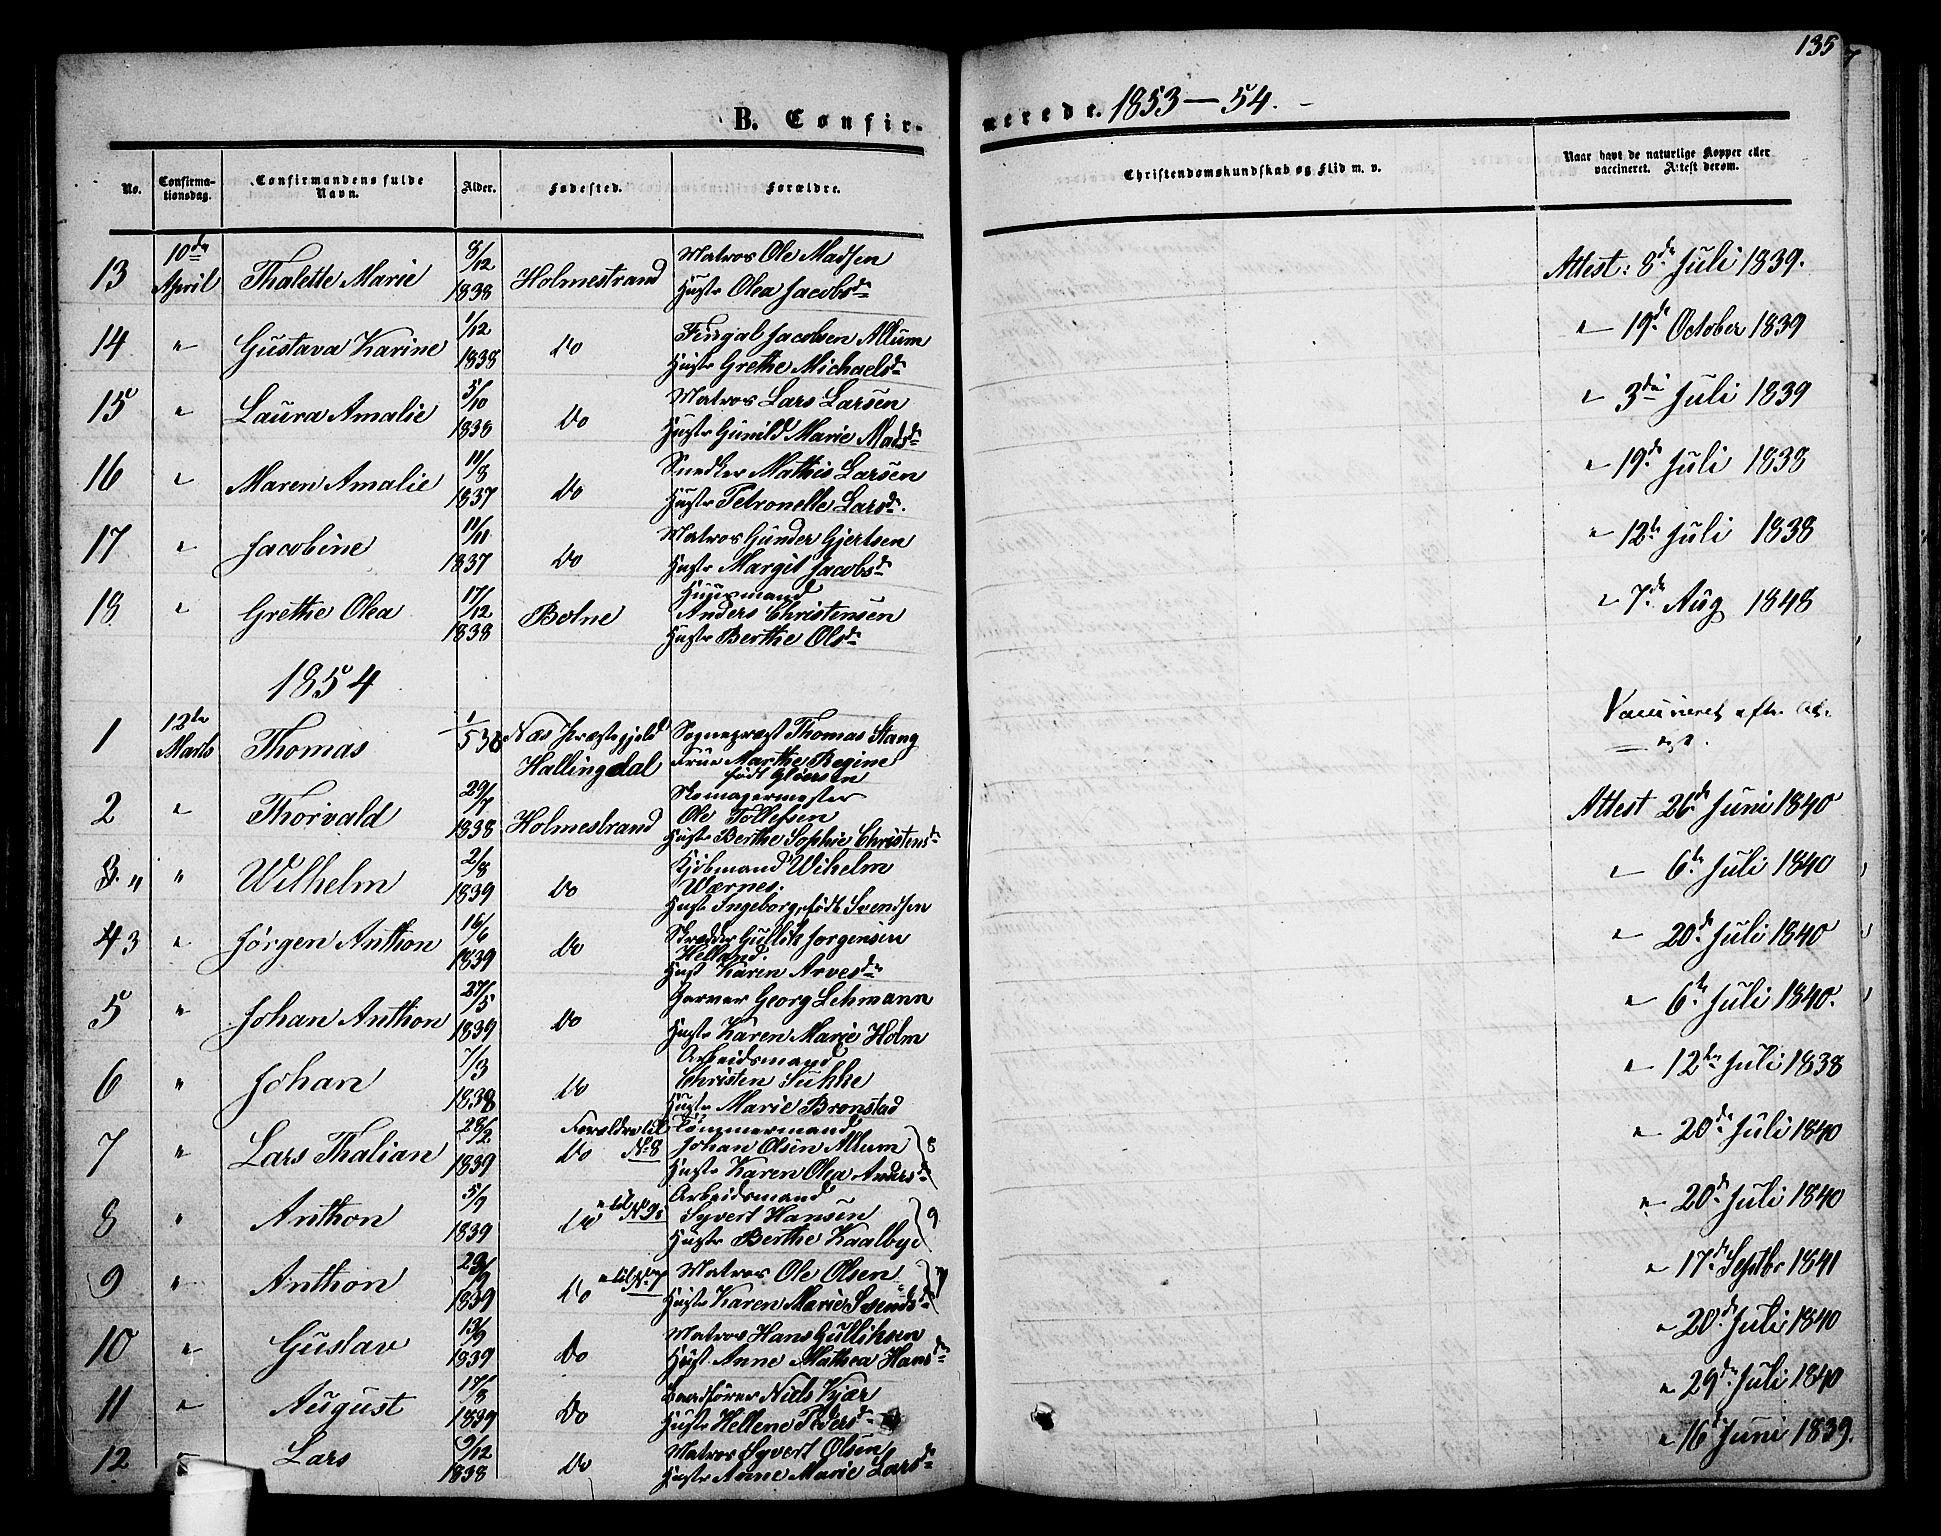 135
B. Confirmerede. 1853—54.
No. Confirmationsdag. Confirmandens fulde Navn. Alder. Fødested. Forældre. Christendomskundskab og Flid m. v. Naar havt de naturlige Kopper eller vaccineret. Attest derom.
13 10de April Thalette Marie 8/12 1838 Holmestrand Matros Ole Madsen Attest: 8de Juli 1839.
Hustr Olea Jacobsdr
14 " Gustava Karine 1/12 1838 Do Fingal Jacobsen Allum " 19de October 1839
Hustr Grethe Michaelsdr
15 " Laura Amalie 5/10 1838 Do Matros Lars Larsen " 3die Juli 1839
Hustr Gunild Marie Madsdr
16 " Maren Amalie 11/8 1837 Do Snedker Mathis Larsen " 19de Juli 1838
Hustr Petronelle Larsdr.
17 " Jacobine 11/11 1837 Do Matros Gunder Gjertsen " 12te Juli 1838
Hustr Margit Jacobsdr
18 " Grethe Olea 17/12 1838 Botne Huusmand " 7de Aug 1848
Anders Christensen
Hustr Berthe Olsdr
1854
1 12te Marts Thomas 1/5 38 Næs Præstegjeld Hallingdal Sognepræst Thomas Stang Vaccineret efter
Frue Marthe Regine
født
2 " Thorvald 29/7 1838 Holmestrand Skomagermester Attest 26de Juni 1840
Ole Tollefsen
Hustr Berthe Sophie Christensdr
3. " " Wilhelm 2/8 1839 Do Kjøbmand Wilhelm " 6te Juli 1840
Wærnes.
Hustr Ingeborg, født Svendsen
4 3 " Jörgen Anthon 16/6 1839 Do Skrædder Gullik Jorgensen " 20de Juli 1840
Helland.
Hust Karen Arvesdr
5 " Johan Anthon 27/5 1839 Do Garver Georg Lehmann " 6te Juli 1840.
Hustr Karen Marie Holm
6 " Johan 7/3 1838 Do Arbeidsmand " 12te Juli 1838
Christen Sukke
Hustr Marie Bronstad
7 " Lars Thalian 28/2 1839 Do Forældre til No 8 Tömmermand " 20de Juli 1840
Johan Olsen Allum 8
Hustr Karen Olea Andersdr
8 " Anthon 5/9 1839 Do " til No 9. Arbeidsmand " 20de Juli 1840
Syvert Hansen 9
Hustr Berthe Kaalbye
9 " Anthon 23/9 1839 Do " til No 7 Matros Ole Olsen 7 " 17de Septbr 1841
Hustr Karen Marie Svendsdr
10 " Gustav 13/9 1839 Do Matros Hans Gulliksen " 20de Juli 1840
Hust. Anne Mathea Hansdr
11 " August 17/8 1839 Do Niels Kjær " 29de Juli 1840
Hustr Hellene Pedersdr
12 " Lars 9/12 1838 Do Matros Syvert Olsen " 16de Juni 1839.
Hustr Anne Marie Larsdr